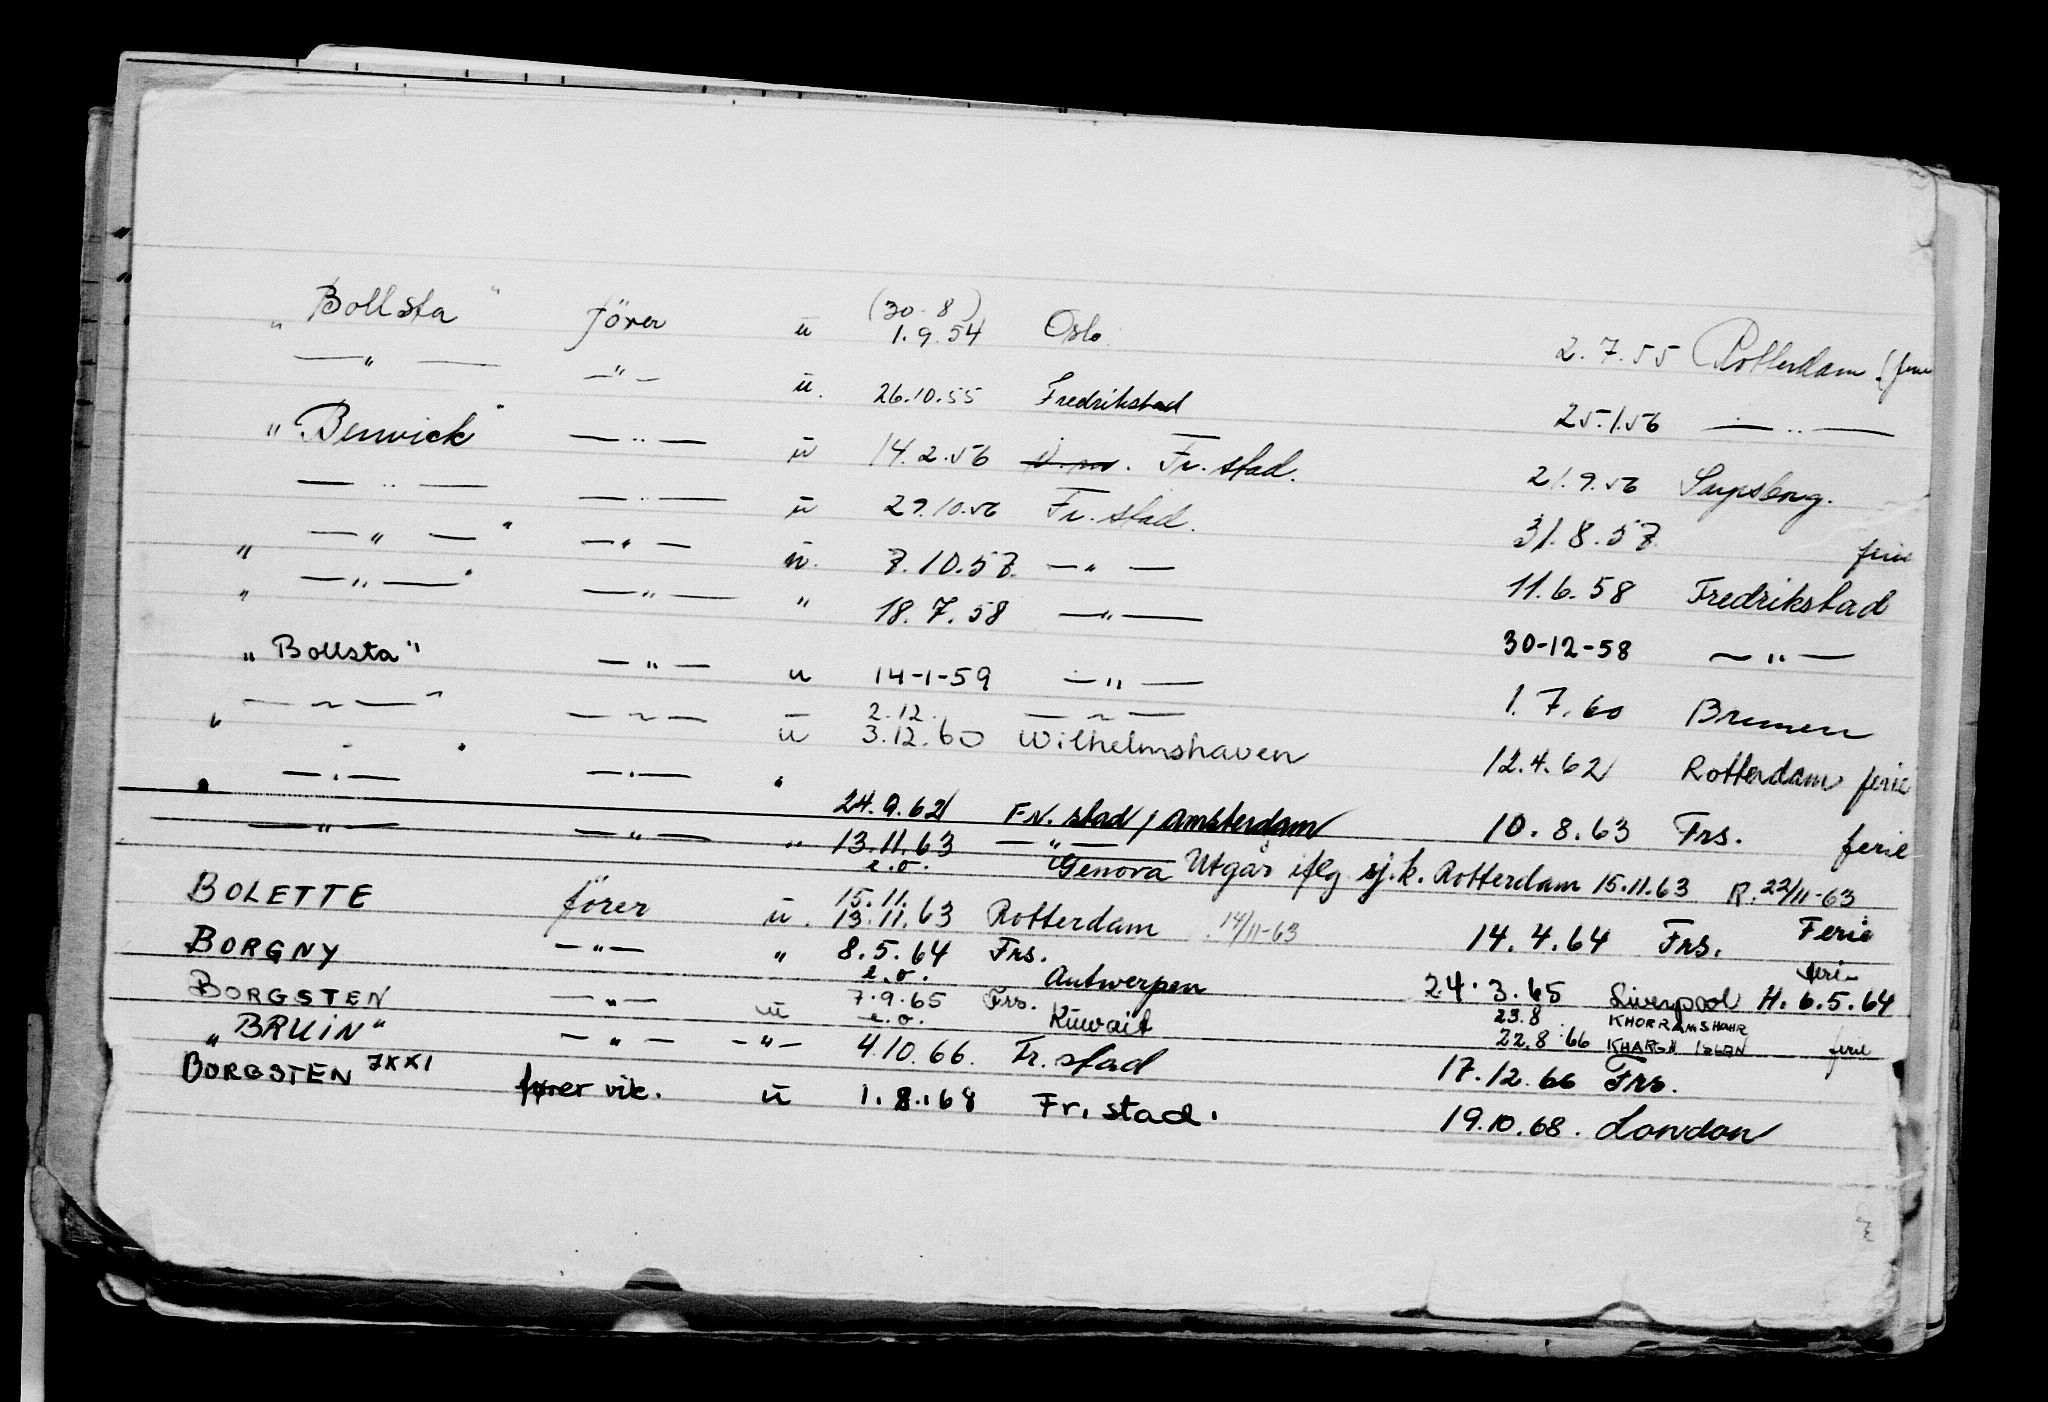 „ Bollsta " förer ü (30-8) 1.9.54 Oslo. 2.7.55 Rotterdam (ferie
— " — — " — ü. 26.10.55 Fredrikstad 25.1.56 — .. —
„ Berwick " — .. — ü 14.2.56 Fr. stad. 21.9.56 Sarpsborg.
— .. — — .. — ü 29.10.56 Fr. stad. 31.8.57 ferie
„ — " — " — " — ü. 7.10.57. — " — 11.6.58 Fredrikstad
„ — " — " — " — " 18.7.58 — " — 30-12-58 — " —
„ Bollsta " — " — u 14-1-59 — " — 1.7.60 Bremen
— " — " — " — — 2.12. — " —
„ — " — " ü 3.12.60 Wilhelmshaven 12.4.62 Rotterdam ferie
„ — " — — " — " 24.9.62 Fr. stad / Amsterdam 10.8.63 Frs. ferie
— " — — " — " 13.11.63 — " —
e.o. Genova Utgår iflg sj.k. Rotterdam 15.11.63 R. 22/11-63
BOLETTE förer ü. 15.11. 13.11.63 Rotterdam 14/11-63 14.4.64 Frs. Ferie
BORGNY — " — " 8.5.64 Frs. ferie
e.o. Antwerpen 24.3.65 Liverpool H. 6.5.64
BORGSTEN — " — ü 7.9.65 Frs. 23.8 KHORRAMSHAHR
e.o. Kuwait 22.8.66 KHARGH ISLAN ferie
„ BRUIN " — " — — " — 4.10.66. Fr. stad 17.12.66 Frs.
BORGSTEN JXXI fører vik. ü 1.8.68 Fr. stad. 19.10.68. London